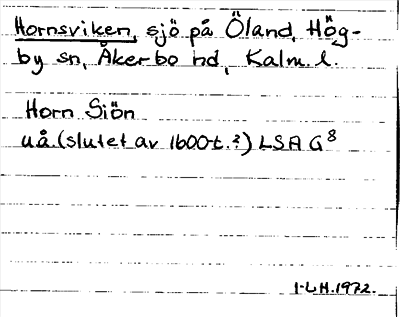 Hornsviken, sjö på Öland, Hög-
by sn, Åkerbo hd, Kalm. l.
Horn Siön
u.å. (slutet av 1600-t.?) LSA G8
I-LH.1972.